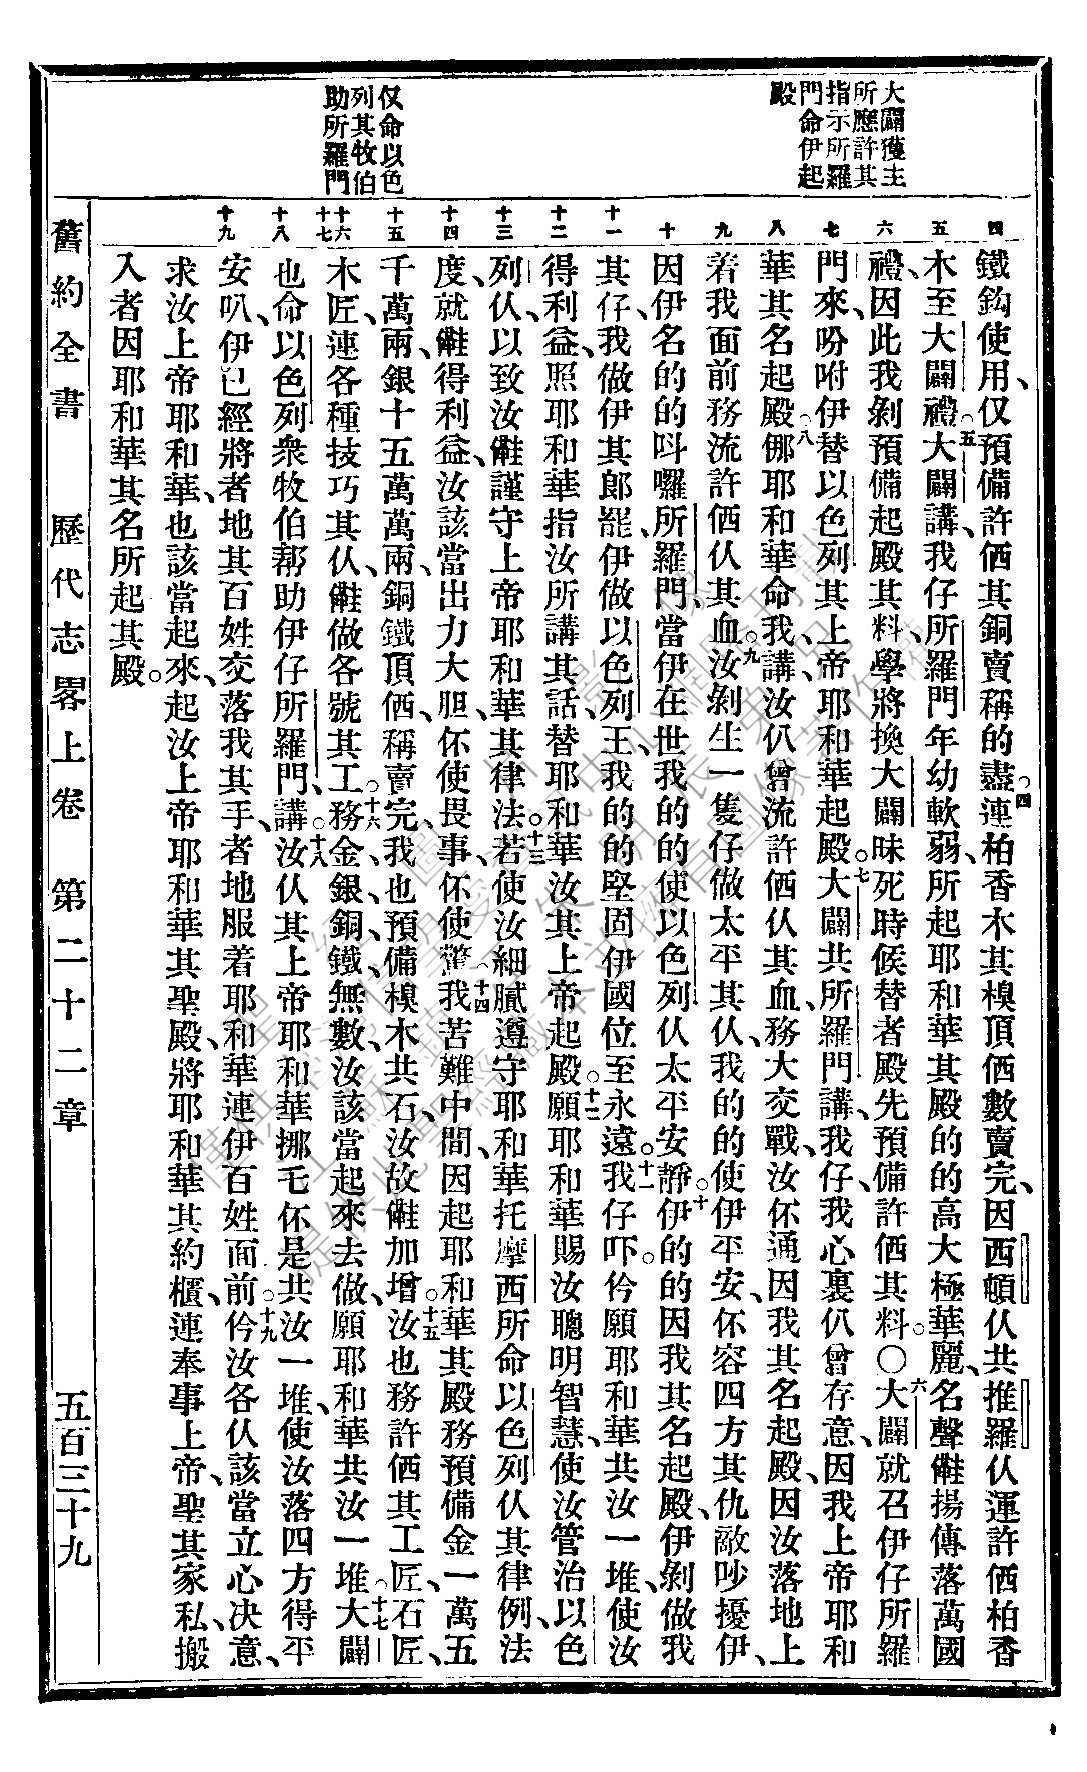 大闢獲主
所應許其
指示所羅
門命伊起
殿
仅命以色
列其牧伯
助所羅門
四 五 六 七 八 九 十 十一 十二 十三 十四 十五 十六 十七 十八 十九
鐵鈎使用、仅預備許価其銅賣稱的盡○四連柏香木其槺頂価數賣完、因西頓仈共推羅仈運許価柏香
木至大闢禮○五大闢講、我仔所羅門年幼軟弱、所起耶和華其殿的的高大極華麗、名聲𠆧揚傳落萬國
禮、因此我剝預備起殿其料、學將換大闢昧死時候替者殿先預備許価其料○○六大闢就召伊仔所羅
門來、吩咐伊替以色列其上帝耶和華起殿○七大闢共所羅門講、我仔、我心裏仈曾存意、因我上帝耶和
華其名起殿○八僫耶和華命我、講、汝仈曾流許価仈其血、務大交戰、汝伓通因我其名起殿、因汝落地上
着我面前務流許価仈其血○九汝剝生一隻仔做太平其仈、我的的使伊平安、伓容四方其仇敵吵擾伊、
因伊名的的呌囉所羅門、當伊在世、我的的使以色列仈太平安靜○十伊的的因我其名起殿、伊剝做我
其仔、我做伊其郎罷、伊做以色列王、我的的堅固伊國位至永遠○十一我仔吓、仱願耶和華共汝一堆、使汝
得利益、照耶和華指汝所講其話、替耶和華汝其上帝起殿○十二願耶和華賜汝聰明智慧、使汝管治以色
列仈、以致汝𠆧謹守上帝耶和華其律法○十三若使汝細膩遵守耶和華托摩西所命以色列仈其律例、法
度、就𠆧得利益、汝該當出力大胆、伓使畏事、伓使驚○十四我苦難中間、因起耶和華其殿務預備金一萬五
千萬兩、銀十五萬萬兩、銅鐵頂価、稱賣完、我也預備槺木共石、汝故𠆧加增○十五汝也務許価其工匠、石匠、
木匠、連各種技巧其仈、𠆧做各號其工○十六務金、銀、銅、鐵、無數、汝該當起來去做、願耶和華共汝一堆○十七大闢
也命以色列衆牧伯幫助伊仔所羅門、講○十八汝仈其上帝耶和華挪乇伓是共汝一堆、使汝落四方得平
安叭、伊已經將者地其百姓交落我其手、者地服着耶和華連伊百姓面前○十九仱汝各仈該當立心决意、
求汝上帝耶和華、也該當起來○起汝上帝耶和華其聖殿、將耶和華其約櫃、連奉事上帝、聖其家私、搬
入者因耶和華其名所起其殿○
舊約全書 歷代志畧上卷 第二十二章 五百三十九